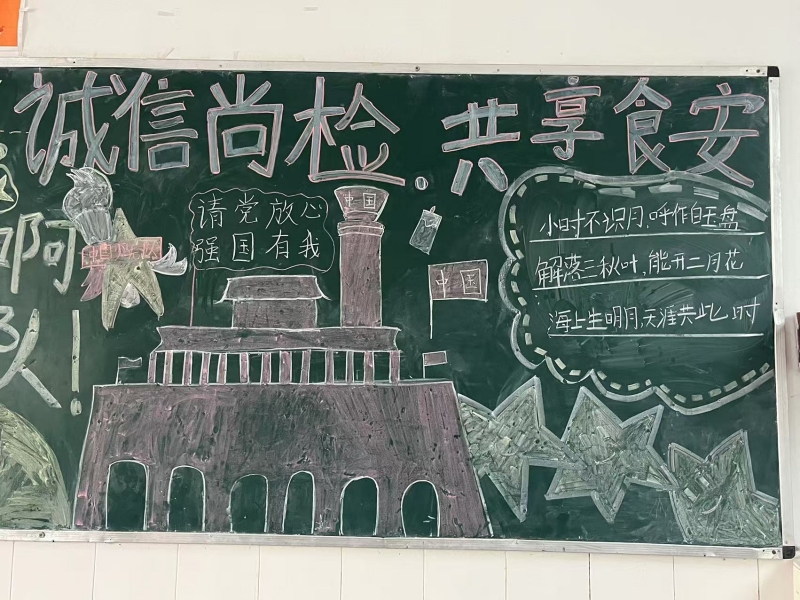 诚信尚检.共享食安
啊
人!
请党放心
强国有我
中国
中国
小时不识月,呼作白玉盘
解落三秋叶,能开二月花
海上生明月,天涯共此时